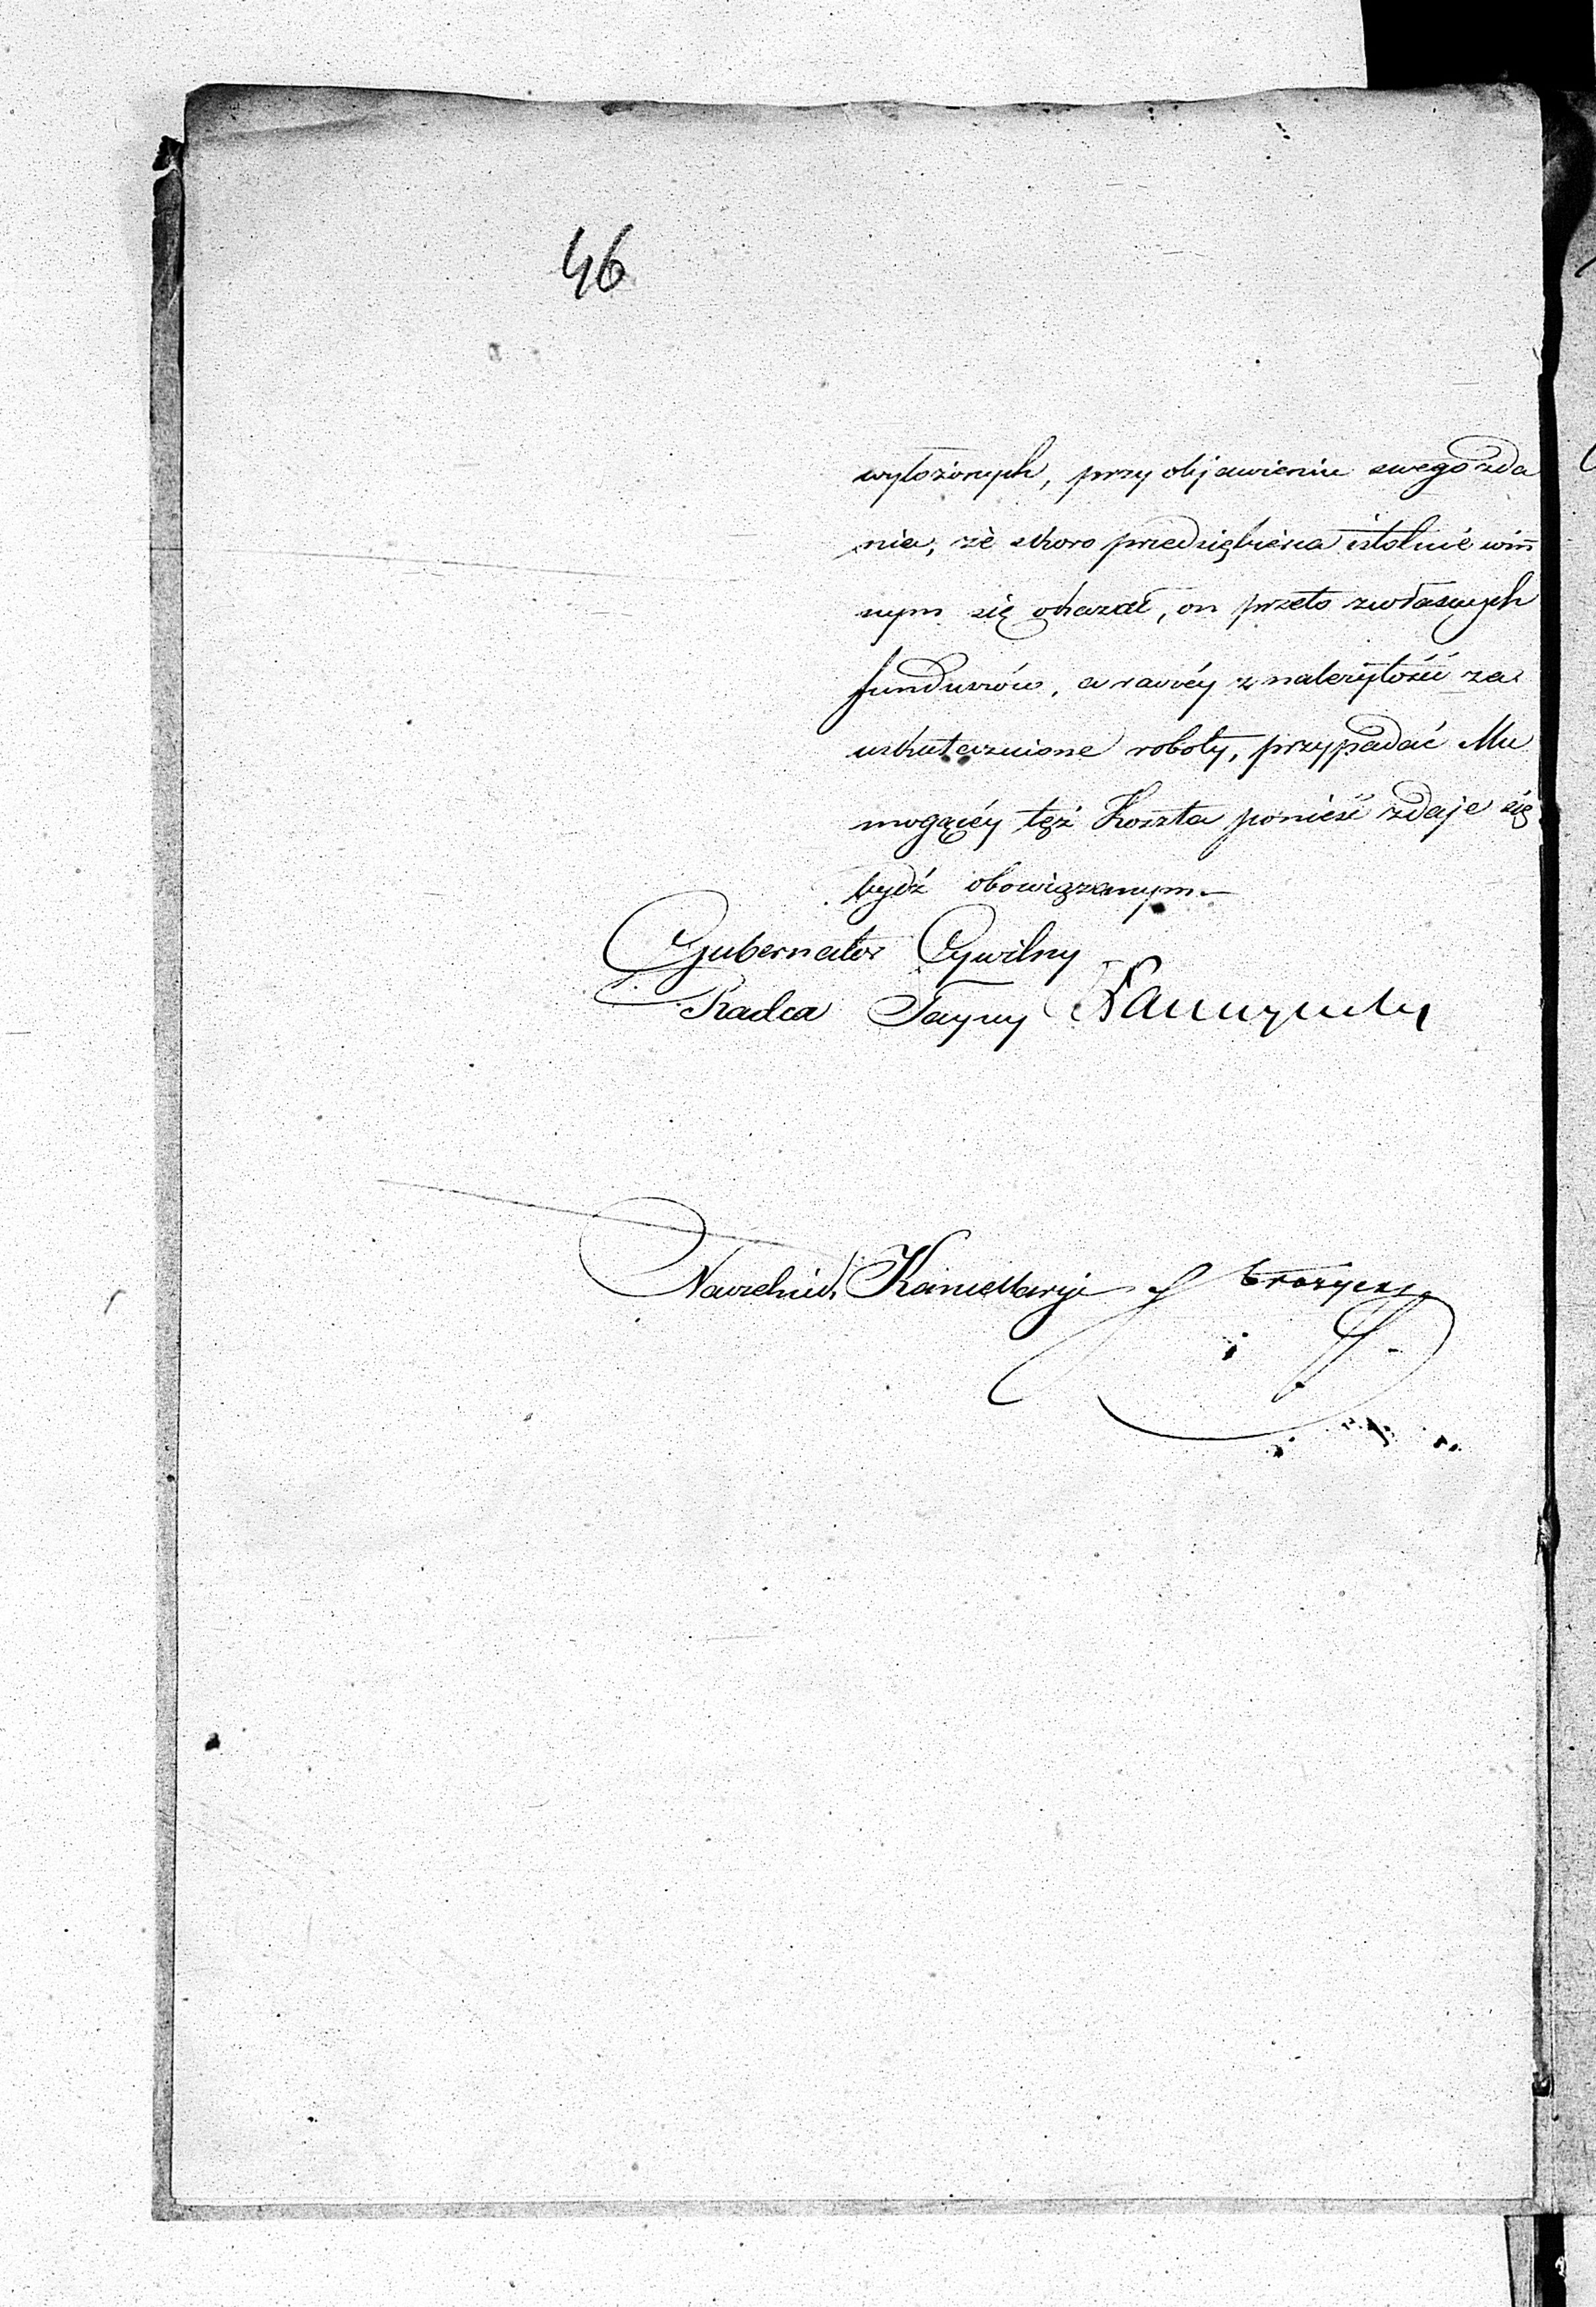 46
wyłożonych, przy objawieniu swego zda
nia, że skoro przedsiębierca istotnie win
nym się okazał, on przeto z własnych
funduszów, a raczéy z należytości za
uskutecznione roboty, przypadać Mu
mogącéy też Koszta ponieść zdaje się
bydź obowiązanym.
Gubernator Cywilny
Radca Tayny
Naczelnik Kancellaryi